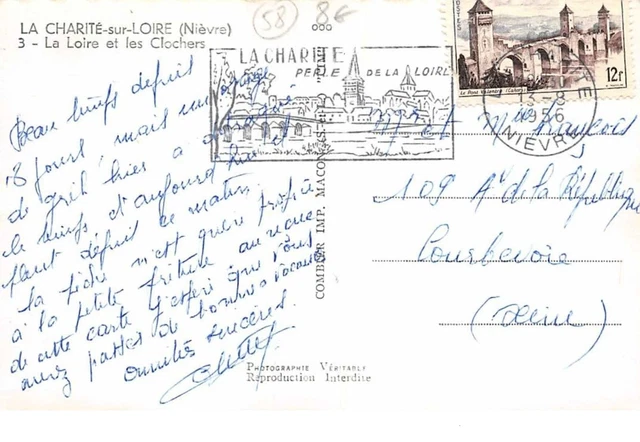 LA CHARITÉ-sur-LOIRE (Nièvre)
3 - La Loire et les Clochers
58 8€
LA CHARITÉ
PERLE DE LA LOIRE
POSTES
12F
Le Pont Valentré (Cahors)
1956
NIEVRE
Beau temps depuis
8 jours, mais un orage
de grêle hier a
le temps d'aujourd'hui et
pleut depuis ce matin.
La pêche n'est guère
à la petite friture au
de cette carte j'espère que vous
avez passés de bonnes vacances
Amitiés sincères.
COMBIER IMP. MACON
François
109 Av de la République
Courbevoie
(Seine)
PHOTOGRAPHIE VÉRITABLE
Reproduction Interdite